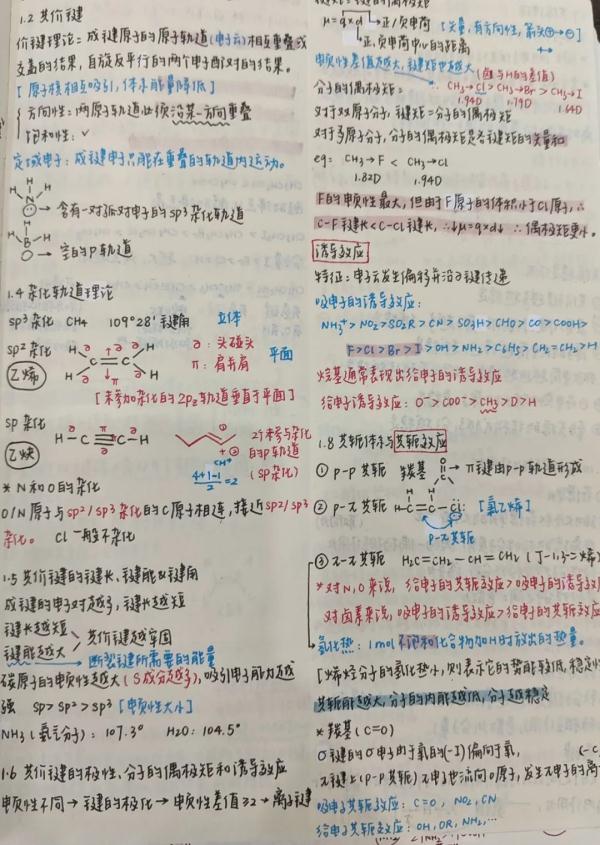 1.2 共价键
价键理论=成键原子的原子轨道(电子云)相互重叠或
交盖的结果，自旋反平行的两个电子配对的结果。
[原子核相互吸引，体系能量降低]
方向性=两原子轨道必须沿某一方向重叠
饱和性：✓
定域电子：成键电子只能在重叠的轨道内运动。
H H
N → 含有一对孤对电子的sp³杂化轨道
H
H
B-H → 空的p轨道
H
1.4 杂化轨道理论
sp³杂化 CH4 109°28′键角 立体
sp²杂化
乙烯
H H
C=C
H H
σ π
σ：头碰头
π：肩并肩
平面
[未参加杂化的2pz轨道垂直于平面]
sp杂化
乙炔
H-C≡C-H
4+1-1/2=2
2个未参与杂化
的p轨道
(sp杂化)
* N和O的杂化
O/N原子与sp²/sp³杂化的C原子相连，接近sp²/sp³
杂化。 Cl一般不杂化
1.5 共价键的键长、键能&键角
成键的电子对越多，键长越短
键长越短
键能越大
共价键越牢固
断裂键所需要的能量
碳原子的电负性越大(S成分越多)，吸引电子能力越
强 sp>sp²>sp³ [电负性大小]
NH3(氨气分子)：107.3° H2O：104.5°
1.6 共价键的极性、分子的偶极矩和诱导效应
电负性不同→键的极化→电负性差值≥2→离子键
μ=q×d →正/负电荷 [矢量，有方向性，箭头⊕→⊖]
正、负电荷中心的距离
电负性差值越大，键矩也越大
(卤与H的差值)
分子的偶极矩= CH3→Cl>CH3→Br>CH3→I
1.94D 1.79D 1.64D
对于双原子分子，键矩=分子的偶极矩
对于多原子分子，分子的偶极矩是各键矩的矢量和
eg: CH3→F < CH3→Cl
1.82D 1.94D
F的电负性最大，但由于F原子的体积小于Cl原子，∴
C-F键长<C-Cl键长，∴↓μ=q×d↓ ∴偶极矩更小。
诱导效应
特征：电子云发生偏移并沿σ键传递
吸电子的诱导效应：
NH3⁺>NO2>SO2R>CN>SO3H>CHO>CO>COOH>
F>Cl>Br>I>OH>NH2>C6H5>CH2=CH2>H
烷基通常表现出给电子的诱导效应
给电子诱导效应：O⁻>COO⁻>CH3>D>H
1.8 共轭体系与共轭效应
① p-p共轭 羰基 → π键由p-p轨道形成
② p-π共轭 H-C=C-Cl: [氯乙烯]
p-π共轭
③ π-π共轭 H2C=CH2-CH=CH2 (丁-1,3-二烯)
*对N,O来说，给电子的共轭效应>吸电子的诱导效
对卤素来说，吸电子的诱导效应>给电子的共轭效应
氢化热：1mol不饱和化合物加H时放出的热量。
[烯烃分子的氢化热小，则表示它的势能较低，稳定性
共轭能越大，分子的内能越低，分子越稳定
*羰基(C=O)
σ键的σ电子由于氧的(-I)偏向于氧， (-C
π键(p-p共轭)π电子也流向O原子，发生π电子的离
吸电子共轭效应：C=O, NO2, CN
给电子共轭效应：OH, OR, NH2,…